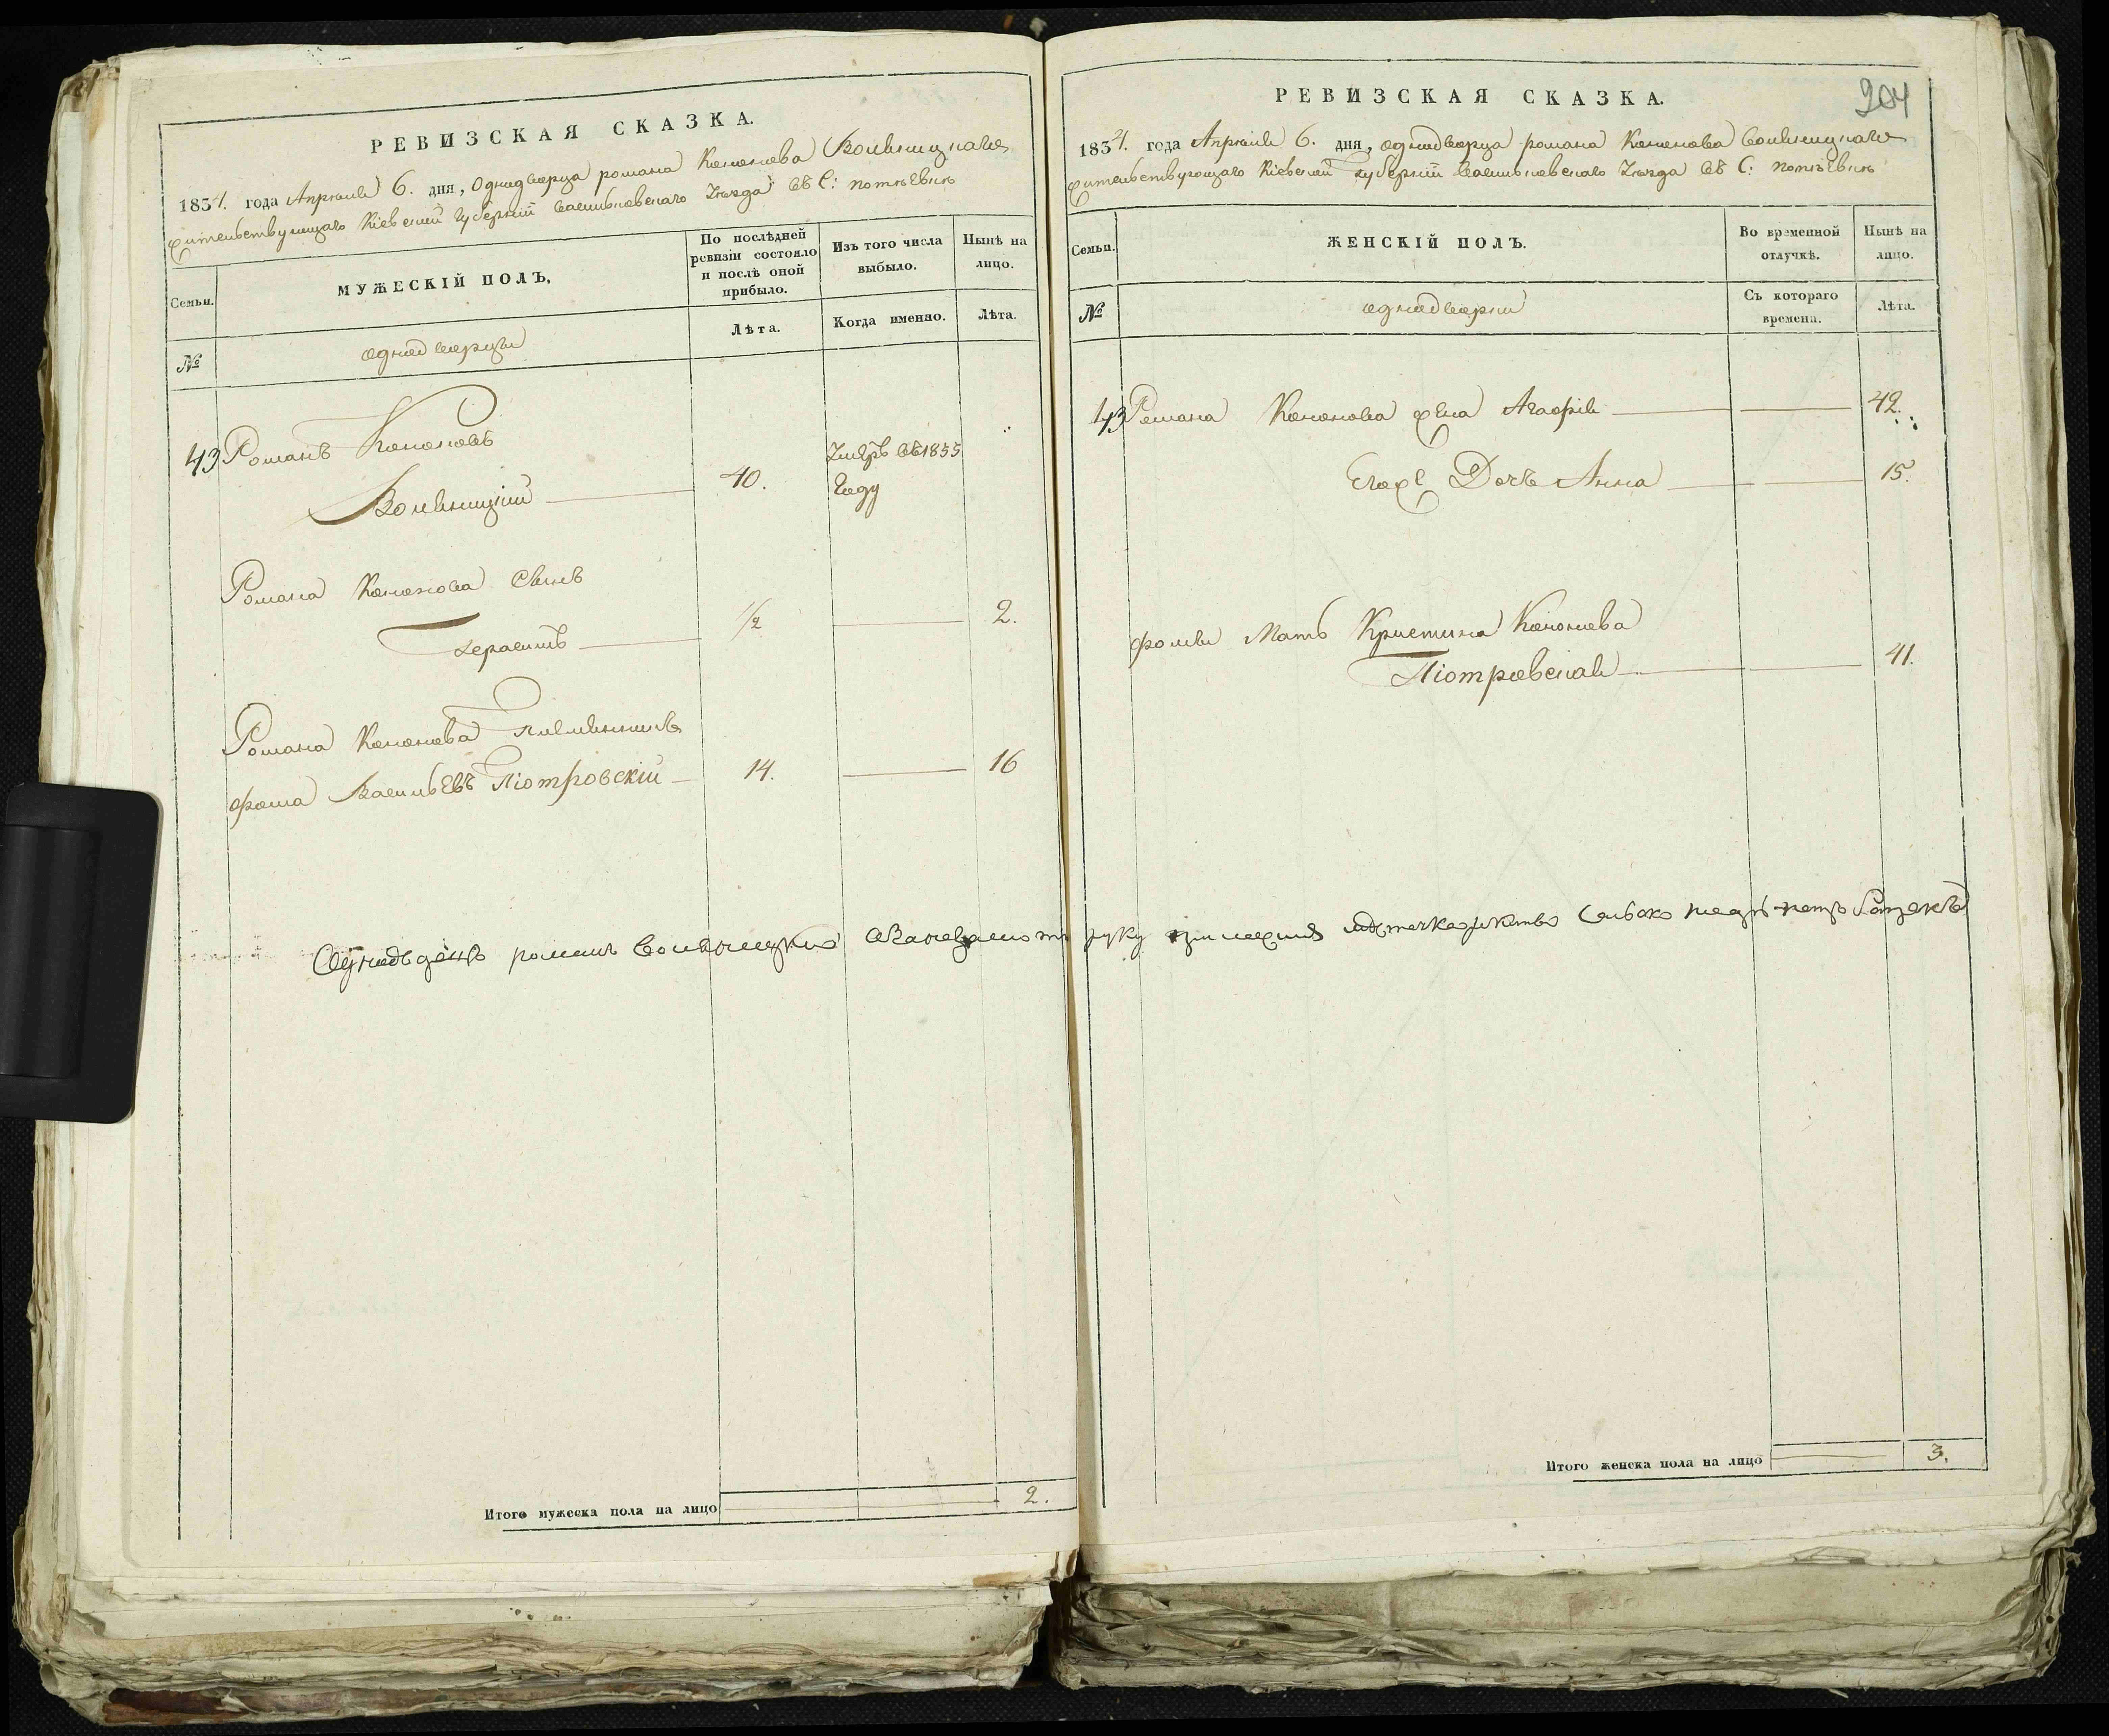 РЕВИЗСКАЯ СКАЗКА.
1834. года Апреля 6. дня, Однодворца романа Кононова Волиницкаго
жительствующаго Кіевской Губерніи Васильковскаго Уезда въ С: потіевки
Семьи.
МУЖЕСКІЙ ПОЛЪ,
По послѣдней ревизіи состояло и послѣ оной прибыло.
Изъ того числа выбыло.
Нынѣ на лицо.
№
однодворцы
Лѣта.
Когда именно.
Лѣта.
43 Романъ Кононовъ
Волиницкій 40. Умеръ въ 1833 Году
Романа Кононова Сынъ
Герасимъ 1/2 2.
Романа Кононова Племянникъ
фома Васильевъ Піотровскій 14. 16
романъ
руку
Итого мужеска пола на лицо 2.
204
РЕВИЗСКАЯ СКАЗКА.
1834. года Апреля 6. дня, однодворца романа Кононова Волиницкаго
жительствующаго Кіевской губерніи Васильковскаго Уезда въ С: потіевки
Семьи.
ЖЕНСКІЙ ПОЛЪ.
Во временной отлучкѣ.
Нынѣ на лицо.
№
однодворки
Съ котораго времена.
Лѣта.
43 Романа Кононова жена Агафія 42.
Егоже Дочь Анна 15.
фомы Мать Кристина Кононова
Піотровская 41.
Итого женска пола на лицо 3.